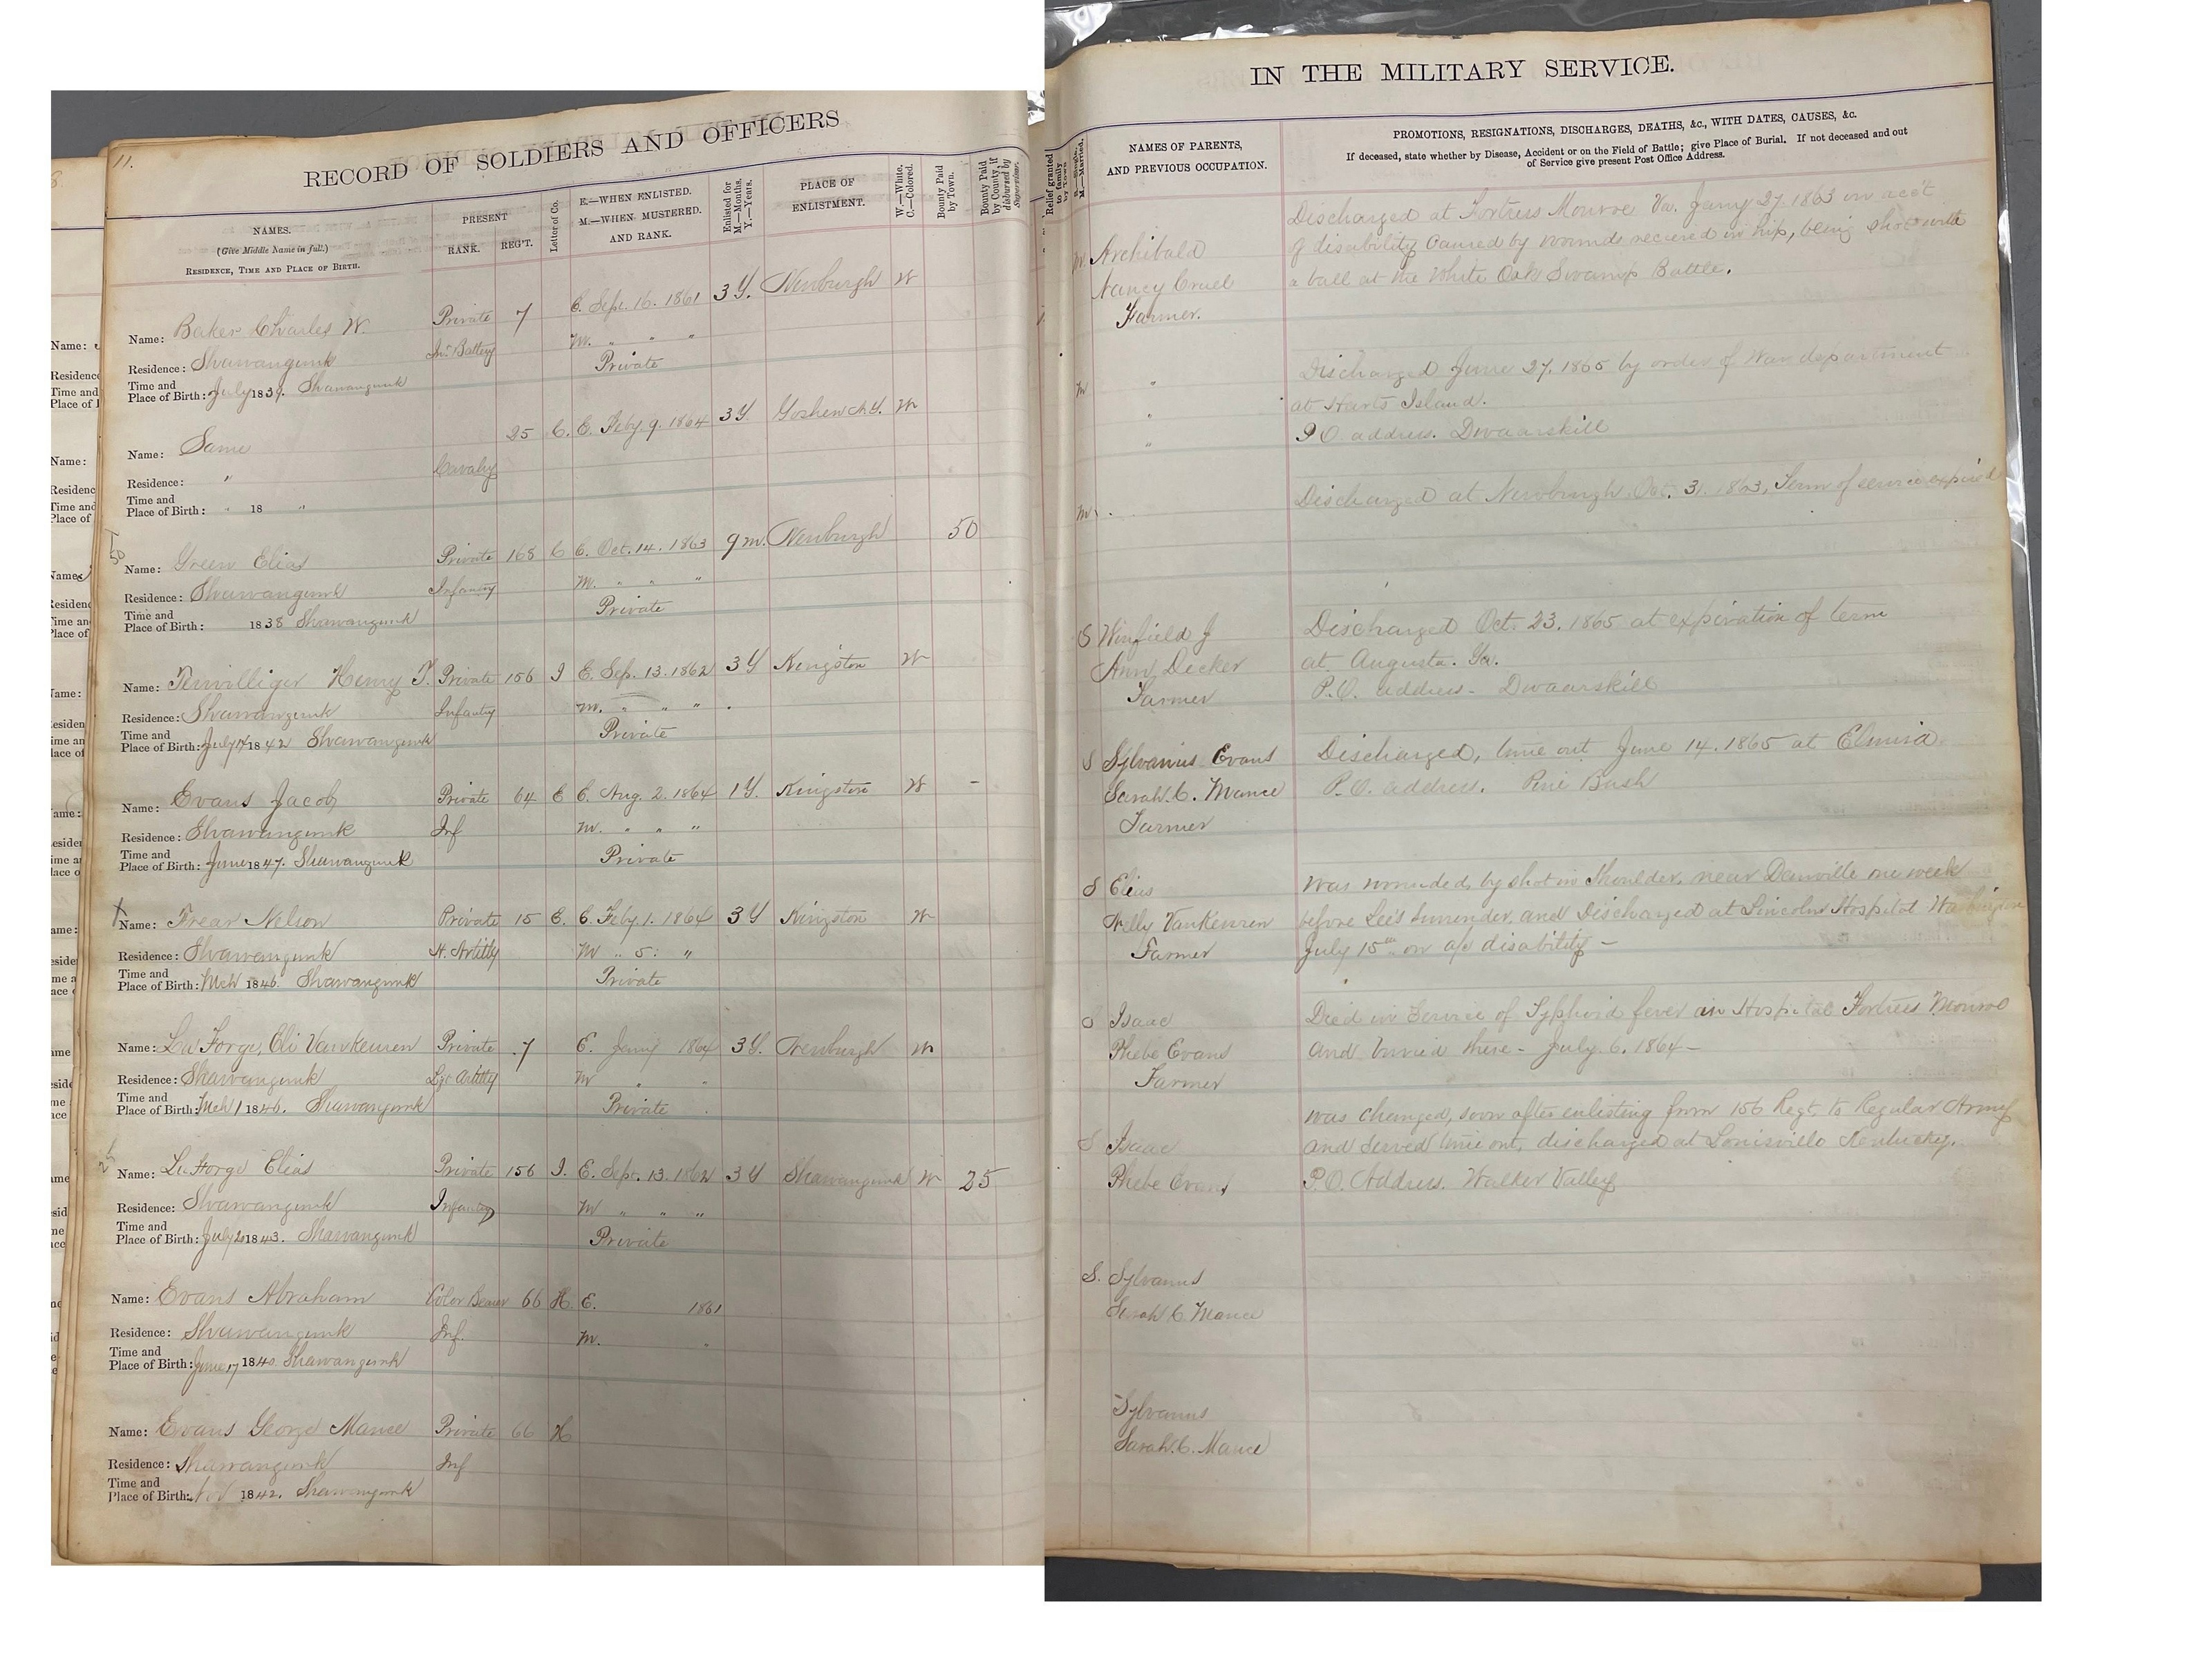 11.
RECORD OF SOLDIERS AND OFFICERS
NAMES.
(Give Middle Name in full.)
RESIDENCE, TIME AND PLACE OF BIRTH.
PRESENT
RANK. REG'T.
Letter of Co.
E.—WHEN ENLISTED.
M.—WHEN MUSTERED.
AND RANK.
Enlisted for
M.—Months.
Y.—Years.
PLACE OF
ENLISTMENT.
W.—White.
C.—Colored.
Bounty Paid
by Town.
Bounty Paid
by County, if
disbursed by
Supervisor.
Name: Baker Charles W. Private 7 E. Sept. 16. 1861 3 Y. Newburgh W
Residence: Shawangunk In. Battery M. " " "
Time and
Place of Birth: July 1839. Shawangunk Private
Name: Same 25 C. E. Feby 9. 1864 3 Y Goshen N.Y. W
Residence: " Cavalry
Time and
Place of Birth: " 18 "
Name: Green Elias Private 168 C E. Oct. 14. 1863 9 m. Newburgh 50
Residence: Shawangunk Infantry M. " " "
Time and
Place of Birth: 1838 Shawangunk Private
Name: Terwilliger Henry T. Private 156 I E. Sep. 13. 1862 3 Y Kingston W
Residence: Shawangunk Infantry M. " " "
Time and
Place of Birth: July 14 1842 Shawangunk Private
Name: Evans Jacob Private 64 E E. Aug. 2. 1864 1 Y. Kingston W -
Residence: Shawangunk Inf M. " " "
Time and
Place of Birth: June 1847. Shawangunk Private
Name: Frear Nelson Private 15 E. E. Feby. 1. 1864 3 Y Kingston W
Residence: Shawangunk H. Artilly M " 5: "
Time and
Place of Birth: Mch 1846. Shawangunk Private
Name: La Forge, Eli Vankeuren Private 7 E. Jany 1864 3 Y. Newburgh W
Residence: Shawangunk Lgt Artilly M " "
Time and
Place of Birth: Mch 1 1846. Shawangunk Private
Name: La Forge Elias Private 156 I. E. Sept. 13. 1862 3 Y Shawangunk W 25
Residence: Shawangunk Infantry M " " "
Time and
Place of Birth: July 2 1843. Shawangunk Private
Name: Evans Abraham Color Bearer 66 H. E. 1861
Residence: Shawangunk Inf. M. "
Time and
Place of Birth: June 17 1840. Shawangunk
Name: Evans George Mance Private 66 H
Residence: Shawangunk Inf
Time and
Place of Birth: Nov 1842. Shawangunk
IN THE MILITARY SERVICE.
Relief granted
to family
by Town
S.—Single.
M.—Married.
NAMES OF PARENTS,
AND PREVIOUS OCCUPATION.
PROMOTIONS, RESIGNATIONS, DISCHARGES, DEATHS, &c., WITH DATES, CAUSES, &c.
If deceased, state whether by Disease, Accident or on the Field of Battle; give Place of Burial. If not deceased and out
of Service give present Post Office Address.
Discharged at Fortress Monroe Va. Jany 27. 1863 on acct
M Archibald of disability caused by wounds recieved in hip, being shot with
Nancy Cruel a ball at the White Oak Swamp Battle.
Farmer.
M " Discharged June 27. 1865 by order of War department
" at Harts Island.
" P.O. address. Dwaarskill
M Discharged at Newburgh. Oct. 31. 1863, Term of service expired
S Winfield J Discharged Oct. 23. 1865 at expiration of term
Ann Decker at Augusta. Ga.
Farmer P.O. address - Dwaarskill
S Sylvanus Evans Discharged, time out June 14. 1865 at Elmira
Sarah. C. Mance P.O. address. Pine Bush
Farmer
S Elias Was wounded, by shot in Shoulder, near Danville one week
Nelly VanKeuren before Lee's Surrender, and Discharged at Lincoln Hospital Washington
Farmer July 15th on a/c disability -
S Isaac Died in Service of Typhoid fever in Hospital Fortress Monroe
Phebe Evans and buried there - July. 6. 1864 -
Farmer
was changed, soon after enlisting from 156 Regt. to Regular Army
S Isaac and served time out, discharged at Louisville Kentucky.
Phebe Evans P.O. Address. Walker Valley
S. Sylvanus
Sarah C. Mance
Sylvanus
Sarah. C. Mance